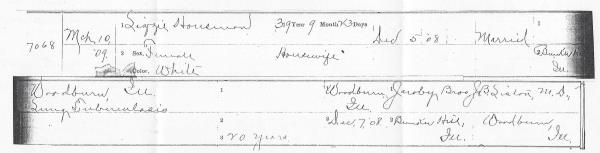 7068 Mch. 10, 1 Lizzie Housman 39 Year 9 Month 23 Days Dec 5 '08 Married 2
'09. 2 Sex, Female Housewife Bunker
Color, White Ill.
Woodburn, Ill. 1 Woodburn Jacoby Bros J.B. Liston, M.D.,
Lung Tuberculosis Ill.
2 Dec. 7, '08 Bunker Hill, Woodburn,
3 20 years Ill. Ill.